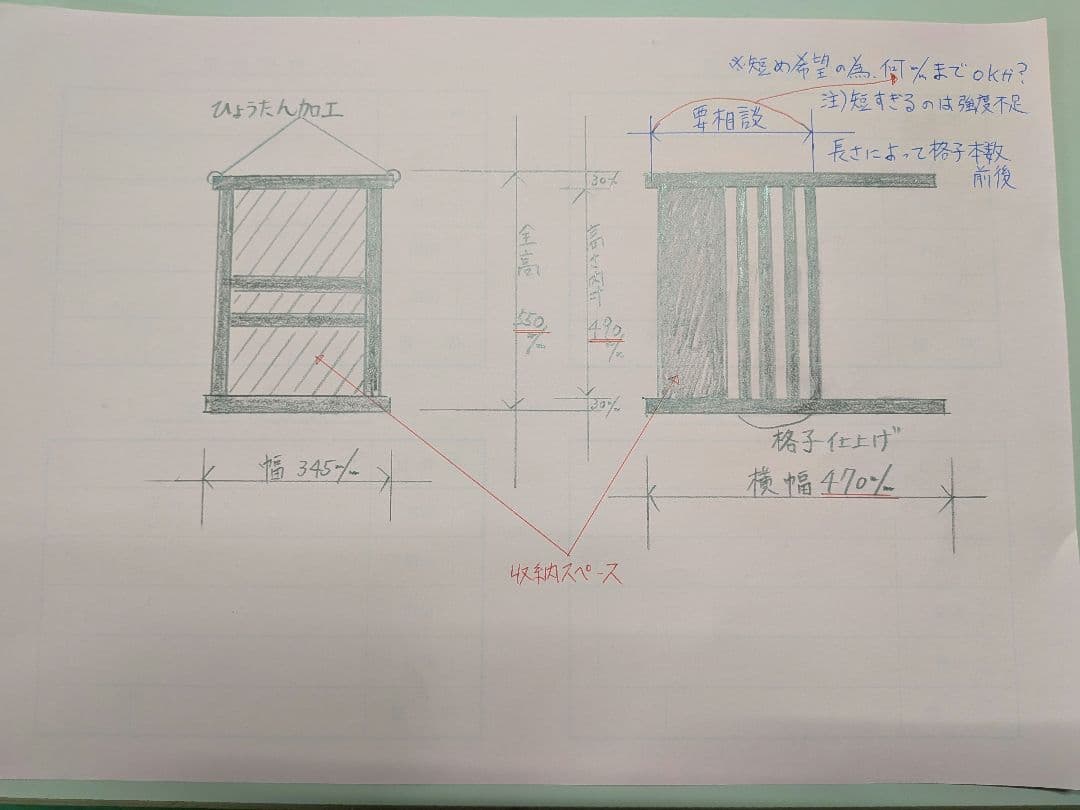 ※短め希望の為、何m/mまでOKか?
注)短すぎるのは強度不足
ひょうたん加工
要相談
長さによって格子本数
前後
30m/m
全高
550m/m
高さ内寸
490m/m
30m/m
格子仕上げ
幅 345m/m
横幅 470m/m
収納スペース